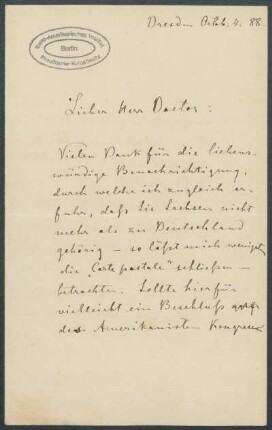 Ibero-Amerikanisches Institut
Berlin
Preußischer Kulturbesitz
Dresden Octb. 4. 88.
Lieber Herr Doctor:
Vielen Dank für die liebens-
würdige Benachrichtigung,
durch welche ich zugleich er-
fuhr, daß Sie Sachsen nicht
mehr als zu Deutschland
gehörig – so läßt mich wenigst.
die „Carte postale" schließen –
betrachten. Sollte hierfür
vielleicht ein Beschluß
des Amerikanisten Kongresses